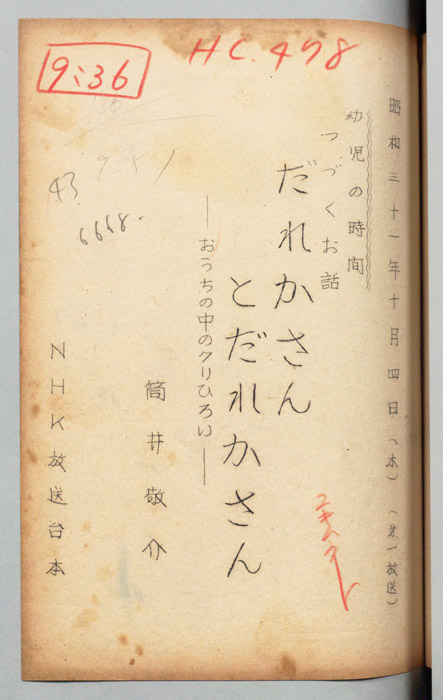 9:36
HC.478
昭和三十一年十月四日(木)(才一放送)
幼児の時間
つづくお話
だれかさん
とだれかさん
―おうちの中のクリひろい―
筒井敬介
NHK放送台本
43
6668.